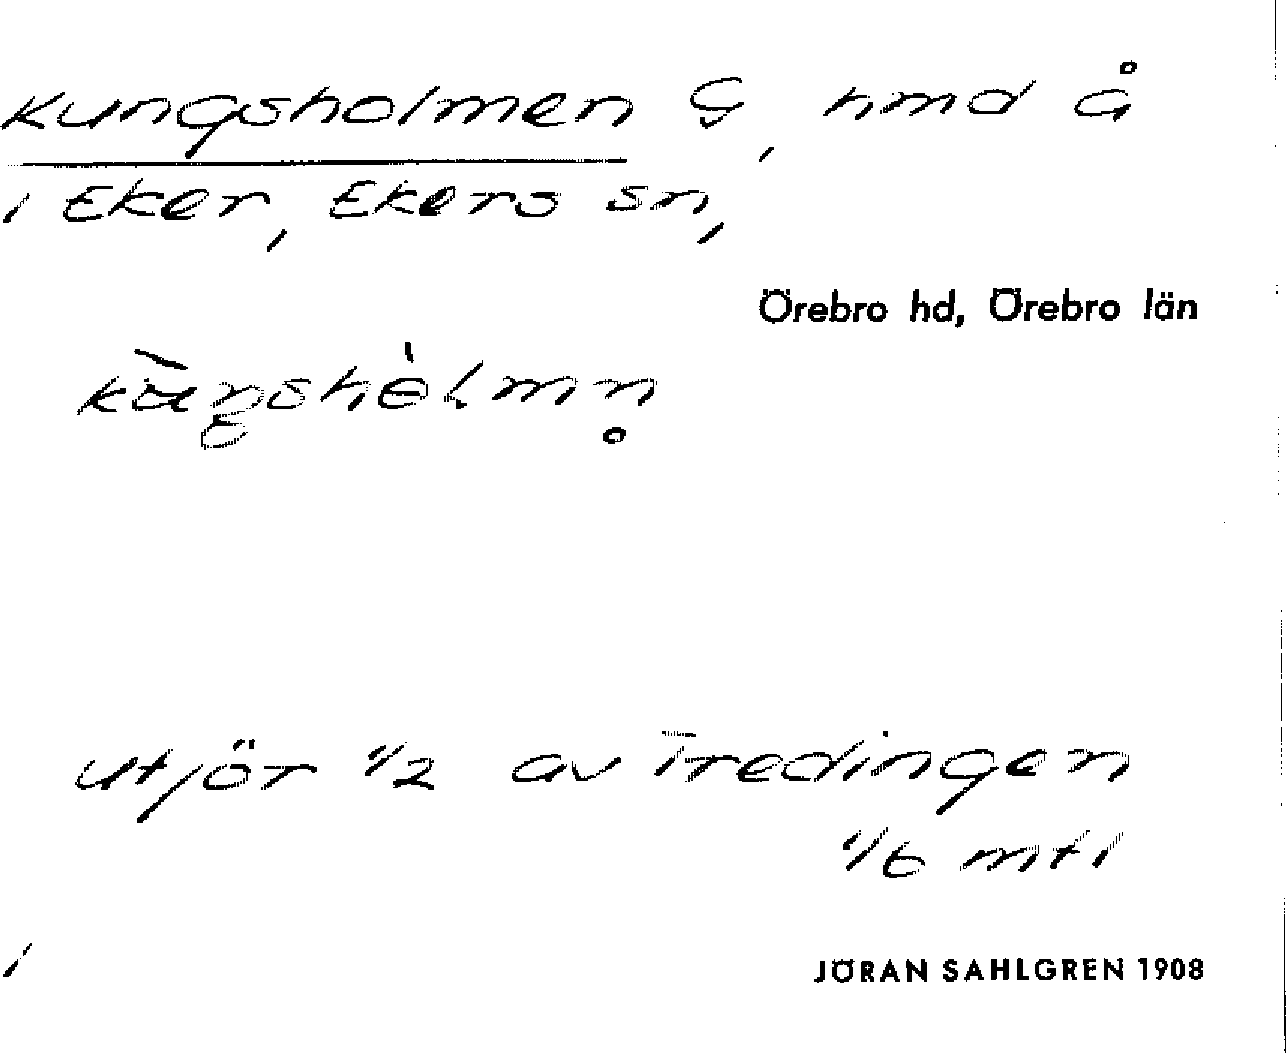 Kungsholmen G, hmd å
i Eker, Ekers sn,
Örebro hd, Örebro län
utjör 1/2 av Tredingen
1/6 mtl
JÖRAN SAHLGREN 1908